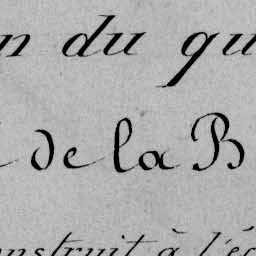 n du qu
de la B
onstruit à l'éc